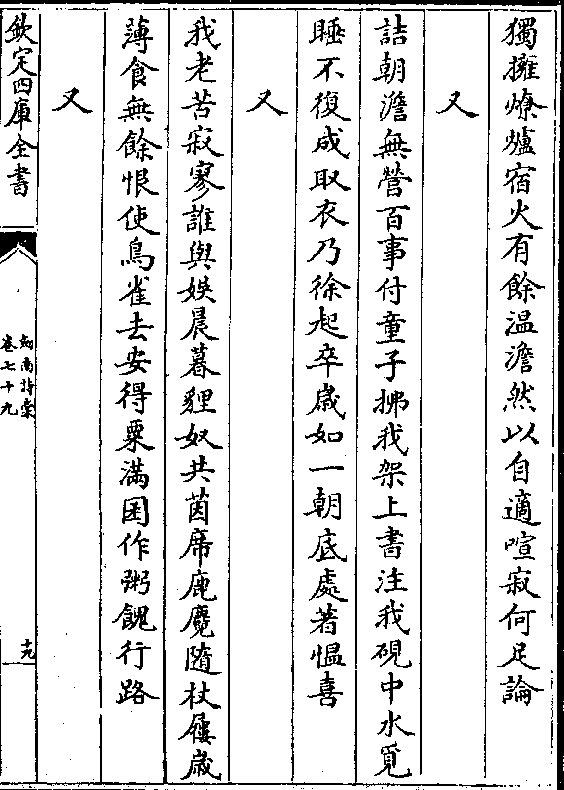 獨擁燎爐宿火有餘温澹然以自適喧寂何足論
又
詰朝澹無營百事付童子拂我架上書注我硯中水覓
睡不復成取衣乃徐起卒嵗如一朝底處著愠喜
又
我老苦寂寥誰與娛晨暮貍奴共茵席鹿麑隨杖屨嵗
薄食無餘恨使鳥雀去安得粟滿囷作粥餽行路
又
欽定四庫全書
劍南詩稾
卷七十九
十九